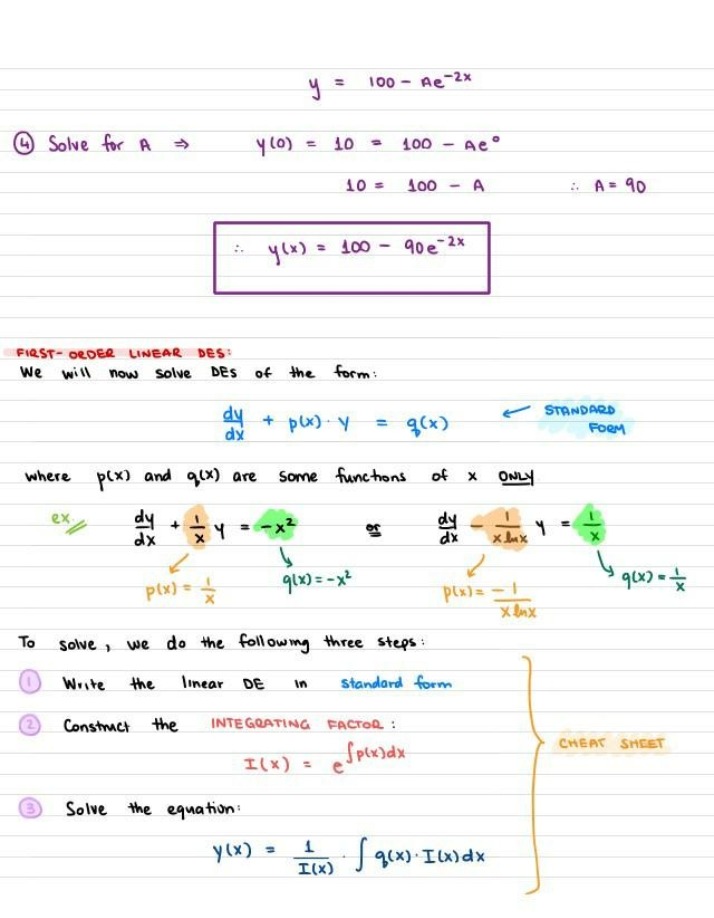 y = 100 - Ae^-2x
④ Solve for A ⇒ y(0) = 10 = 100 - Ae^0
10 = 100 - A ∴ A = 90
∴ y(x) = 100 - 90e^-2x
FIRST-ORDER LINEAR DES:
We will now solve DEs of the form:
dy/dx + p(x)·y = q(x) ← STANDARD FORM
where p(x) and q(x) are some functions of x ONLY
ex. dy/dx + 1/x y = -x² or dy/dx - 1/(x lnx) y = 1/x
p(x) = 1/x q(x) = -x² p(x) = -1/(x lnx) q(x) = 1/x
To solve, we do the following three steps:
① Write the linear DE in standard form
② Construct the INTEGRATING FACTOR:
CHEAT SHEET
I(x) = e^∫p(x)dx
③ Solve the equation:
y(x) = 1/I(x) · ∫ q(x)·I(x)dx